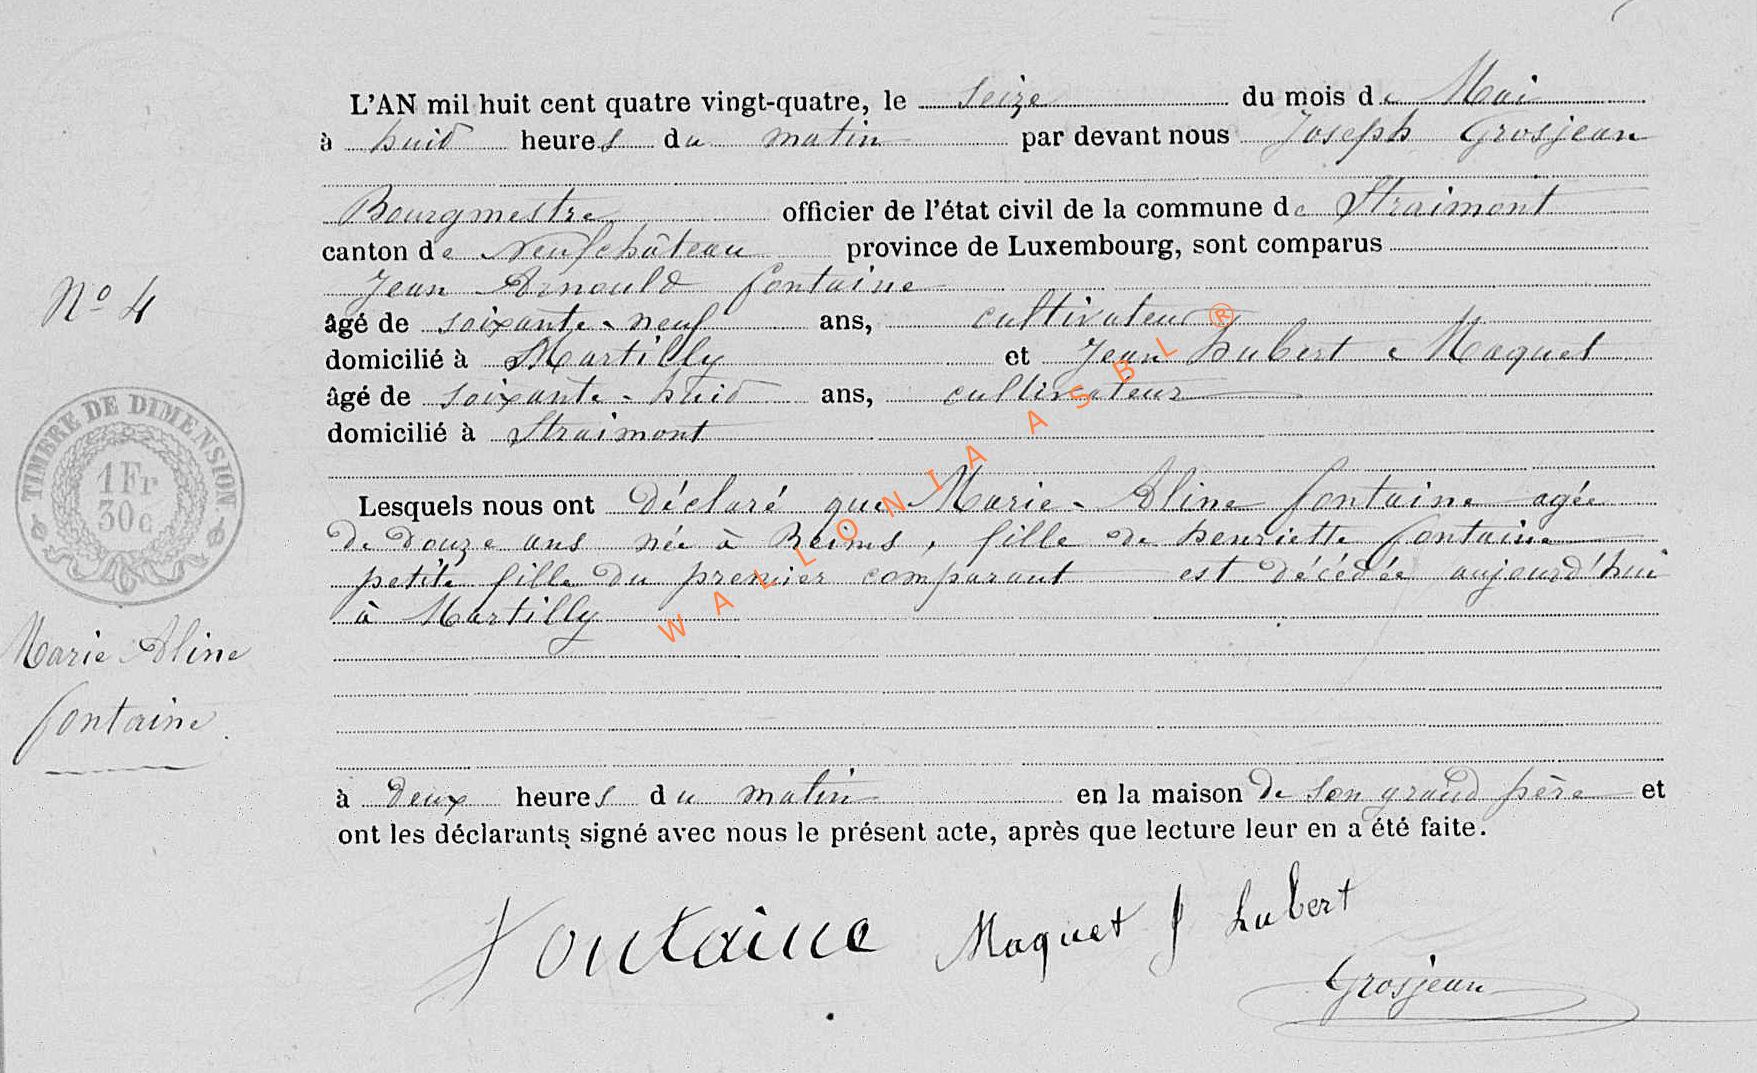 L'AN mil huit cent quatre vingt-quatre, le seize du mois de Mai
à huit heures du matin par devant nous Joseph Grosjean
Bourgmestre officier de l'état civil de la commune de Straimont
canton de Neufchâteau province de Luxembourg, sont comparus
Jean Arnould Fontaine
N° 4
âgé de soixante-neuf ans, cultivateur
domicilié à Martilly et Jean hubert Maquet
âgé de soixante-huit ans, cultivateur
domicilié à Straimont
TIMBRE DE DIMENSION
1 Fr
30 c
Lesquels nous ont déclaré que Marie-Aline Fontaine agée
de douze ans née à Reims, fille de henriette Fontaine
petite fille du premier comparant est décédée aujourd'hui
à Martilly
Marie Aline
Fontaine.
à deux heures du matin en la maison de son grand père et
ont les déclarants signé avec nous le présent acte, après que lecture leur en a été faite.
Fontaine Maquet J hubert
Grosjean
WALLONIA ASBL ®